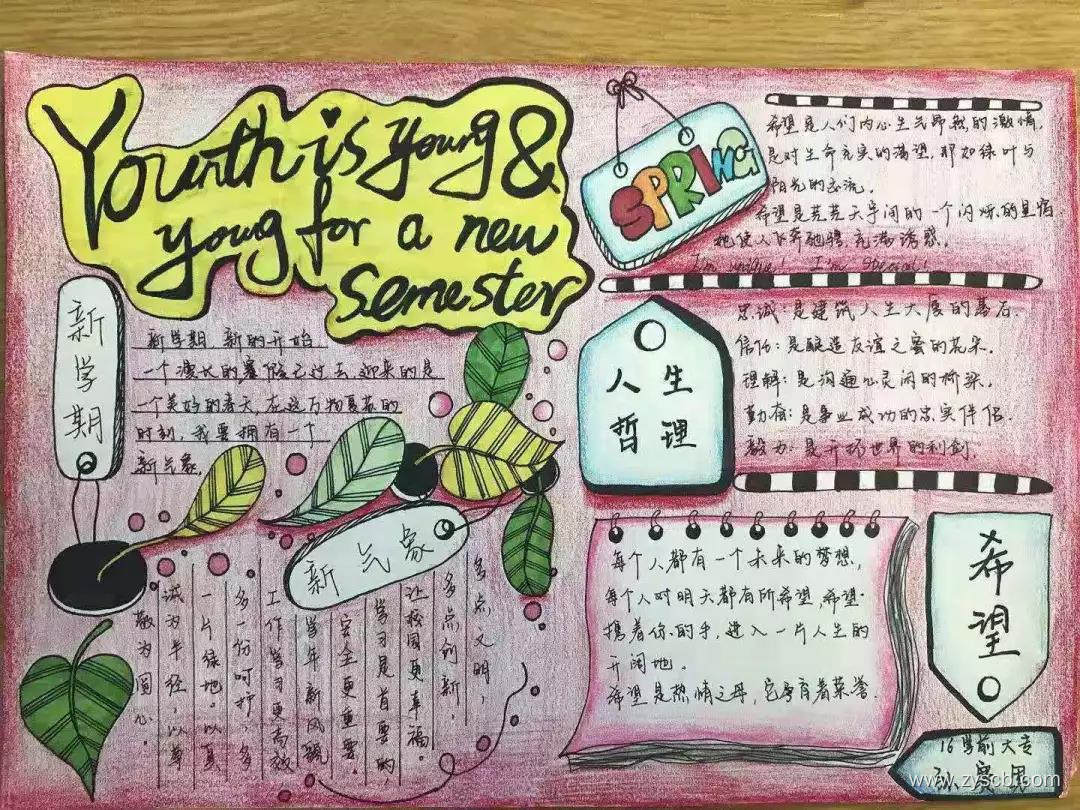 Youth is young &
young for a new
semester
SPRING
希望是人们内心生气即我的激情,
是对生命充实的渴望,那如绿叶与
阳光的交流。
希望是茫茫天宇间的一个闪烁的星宿
她使人飞奔驰骋充满诱惑。
新学期
新学期 新的开始
一个漫长的寒假已过去,迎来的是
一个美好的春天,在这万物复苏的
时刻,我要拥有一个
新气象。
人生
哲理
忠诚:是建筑人生大厦的基石.
信任:是酿造友谊之蜜的花朵.
理解:是沟通心灵间的桥梁.
勤奋:是事业成功的忠实伴侣.
毅力:是开拓世界的利剑.
新气象
多点文明,
多点创新,
让校园更幸福
学习是首要的
安全更重要.
当年新风貌
工作学习更高效
多一份呵护,多
一片绿地。以真
诚为半径,以尊
敬为圆心.
每个人都有一个未来的梦想,
每个人对明天都有所希望,希望
携着你的手,进入一片人生的
开阔地。
希望是热情之母,它孕育着荣誉.
希望
16学前大专
www.zyscb.com